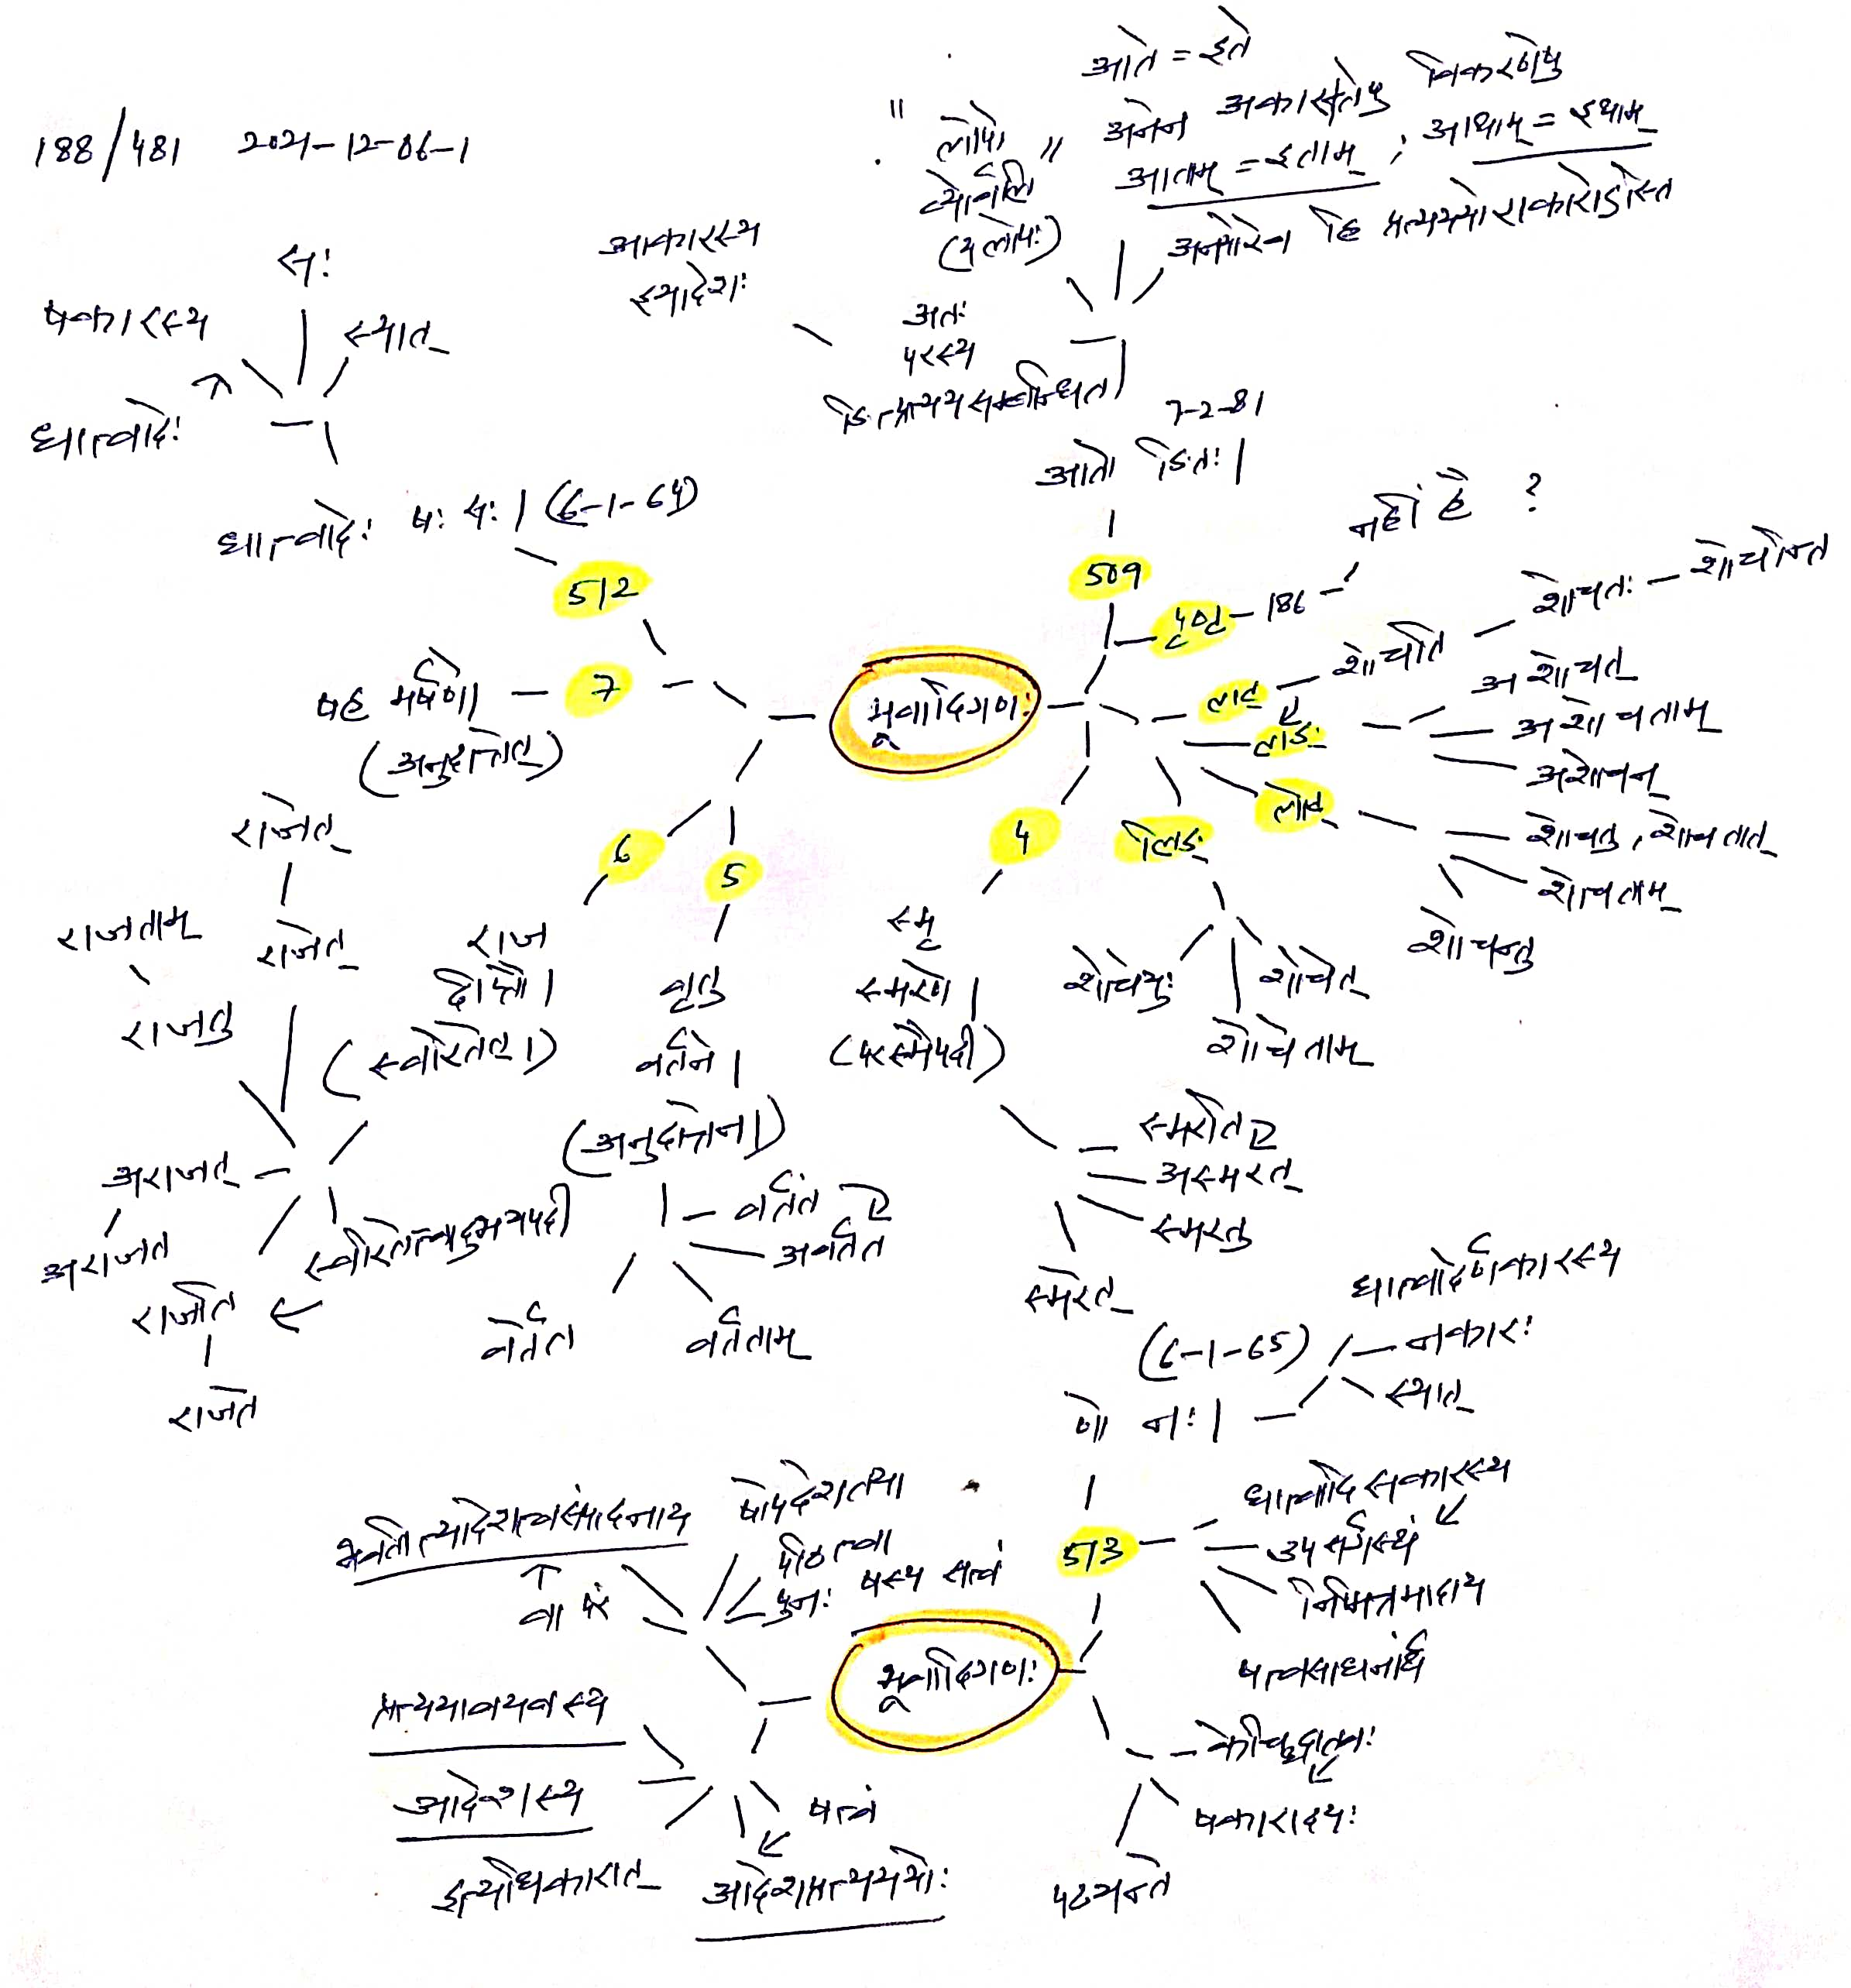 188/481 2021-12-06-1
आते = इते
" लोपो
व्योर्वलि "
(यलोपः)
अनेन अकारान्तेषु विकरणेषु
आताम् = इताम् ; आथाम् = इथाम्
अनयोरेव हि प्रत्यययोराकारोऽस्ति
आकारस्य
इयादेशः
अतः
परस्य
ङित्प्रत्ययसम्बन्धित
7-2-81
आतो ङितः।
509
सः
षकारस्य
स्यात्
धात्वादेः
धात्वादेः षः सः। (6-1-64)
512
7
षह मर्षणे।
(अनुदात्तेत्)
भ्वादिगणः
186
नहीं है ?
लट्
शोचति
शोचतः
शोचन्ति
लङ्
अशोचत्
अशोचताम्
अशोचन्
लोट्
शोचतु, शोचतात्
शोचताम्
शोचन्तु
लिङ्
शोचेत्
शोचेताम्
शोचेयुः
4
स्मृ
स्मरणे।
(परस्मैपदी)
स्मरति
अस्मरत्
स्मरतु
स्मरेत्
5
वृतु
वर्तने।
(अनुदात्तेत्।)
वर्तते
अवर्तत
वर्तताम्
वर्तेत
6
राज
दीप्तौ।
(स्वरितेत्।)
राजेत
राजेत्
राजताम्
राजतु
अराजत्
अराजत
स्वरितेत्त्वादुभयपदी
राजति
राजते
(6-1-65)
धात्वादेर्णकारस्य
नकारः
स्यात्
णो नः।
513
धात्वादि सकारस्य
उपसर्गस्थं
निमित्तमादाय
षत्वसाधनार्थं
भ्वादिगणः
केचिद्धातवः
षकारादयः
पठ्यन्ते
भवतीत्यादेशत्वसंपादनाय
षोपदेशतया
पठित्वा
पुनः षस्य सत्वं
प्रत्ययावयवस्य
आदेशस्य
इत्यधिकारात्
षत्वं
आदेशप्रत्यययोः